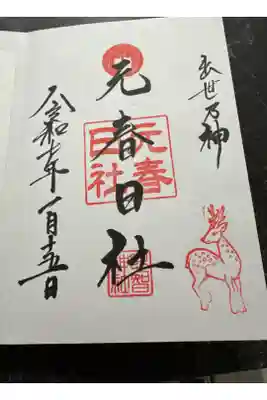 出世乃神
元春日社
元春日社
令和七年一月十五日